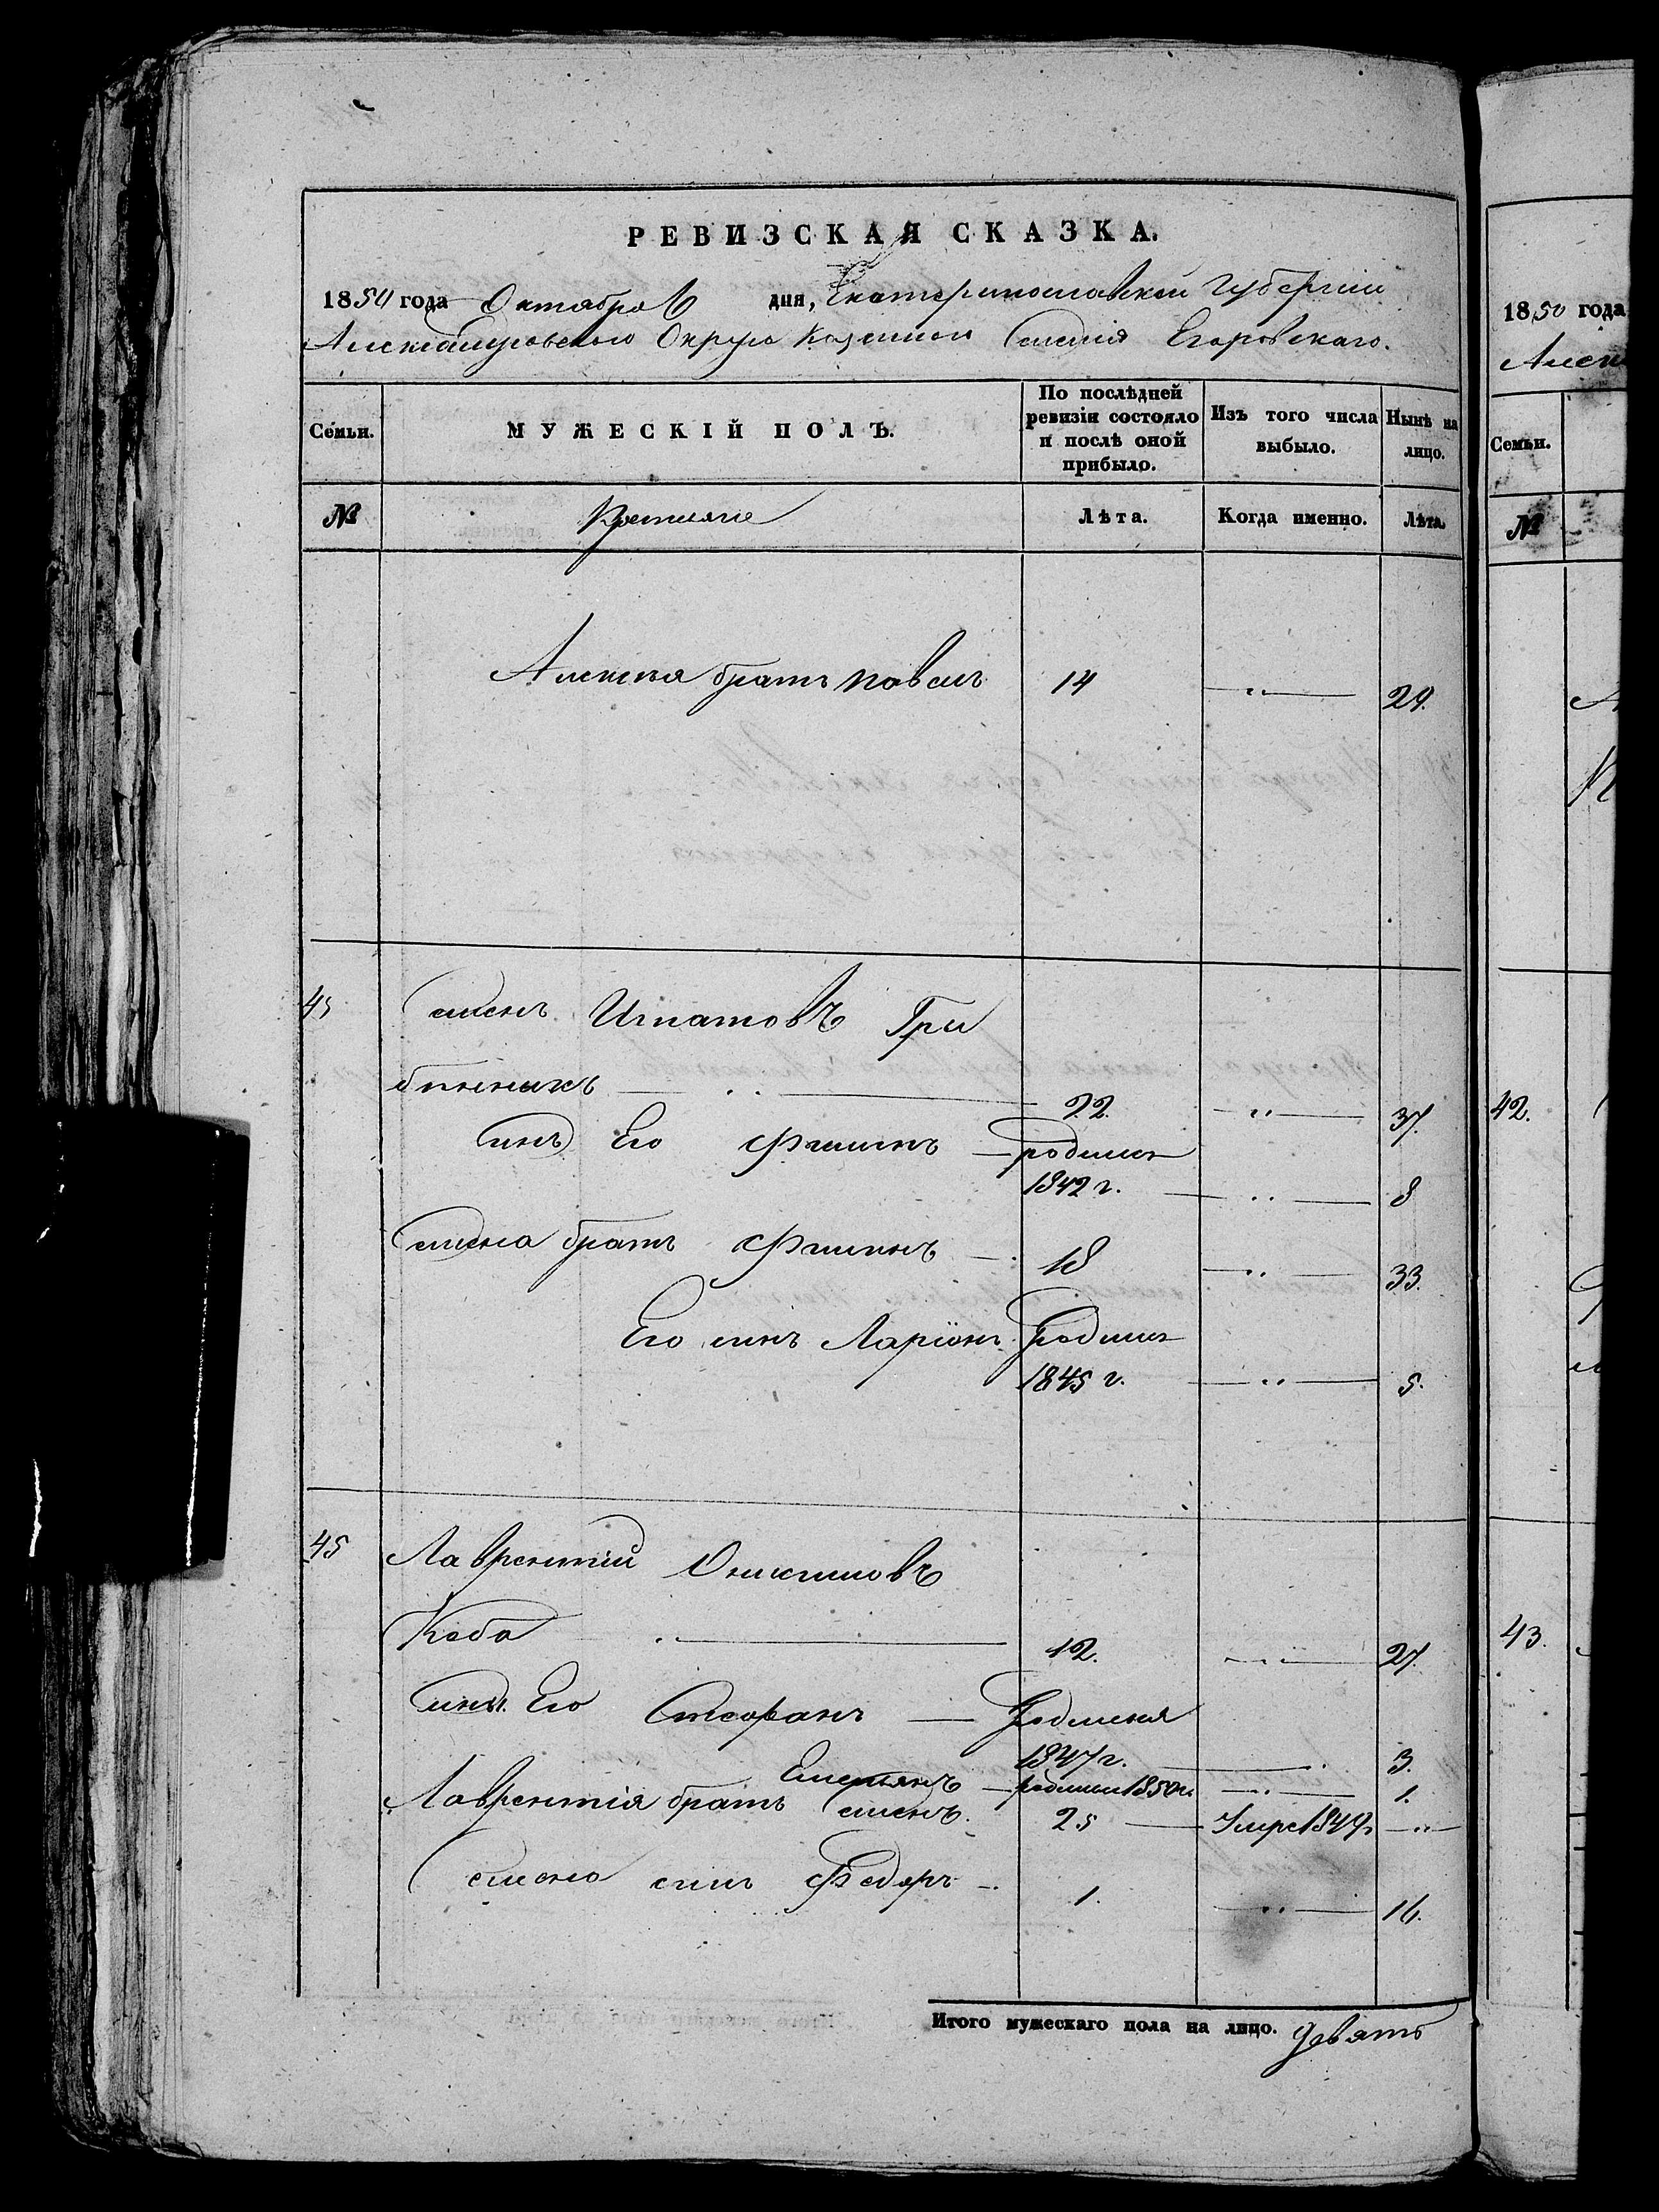 РЕВИЗСКАЯ СКАЗКА.
1850 года Октября 6 дня, Екатеринославской Губернии
Александровского Округа Казенного Селения Егоровскаго.
Семьи.
МУЖЕСКІЙ ПОЛЪ.
По послѣдней ревизіи состояло и послѣ оной прибыло.
Изъ того числа выбыло.
Нынѣ на лицо.
№
Крестьяне
Лѣта.
Когда именно.
Лѣта.
Алексѣя братъ Павелъ 14 29.
45 Семенъ Игнатовъ Гри
бинникъ 22. 37.
Синъ Его Филипъ родился
1842 г. 8
Семена братъ Филипъ 18 33.
Его синъ Ларіонъ родился
1845 г. 5.
45 Лаврентій Оникіиовъ
Коба 12. 27.
Сины Его Стефанъ родился
1847 г. 3.
Емельянъ родился 1850 г. 1.
Лаврентія братъ Семенъ. 25 Умре 1849 г.
Семена синъ Федоръ 1. 16.
Итого мужескаго пола на лицо. Девять
1850 года
Алек
Семьи.
№
42.
43.